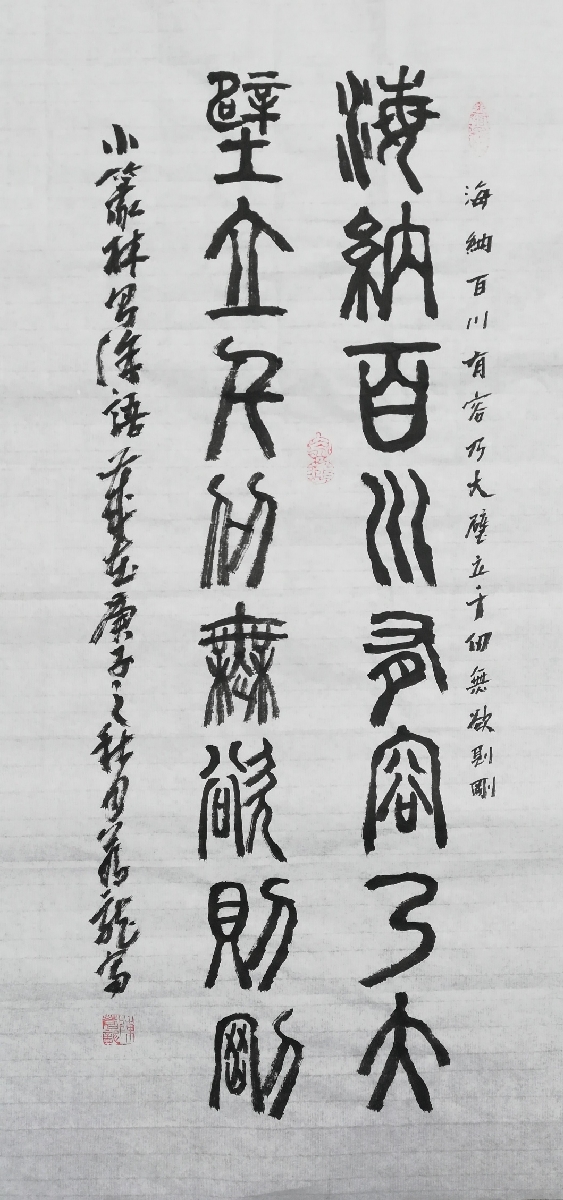 海納百川有容乃大壁立千仞無欲則剛
海納百川有容乃大
壁立千仞無欲則剛
小窗 語 歲在庚子之秋月 龍寫